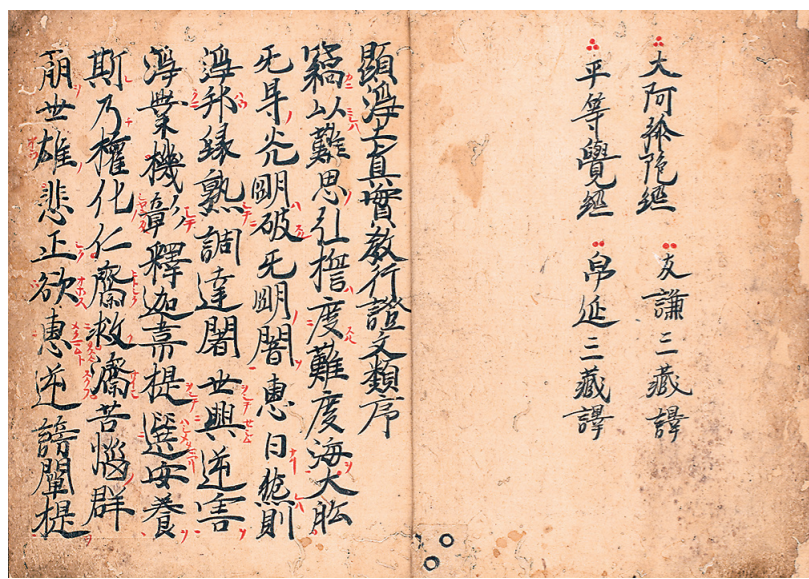 大阿弥陁經 支謙三藏譯
平等覺經 帛延三藏譯
顯浄土真實教行證文類序
竊以難思弘誓度難度海大舩
无㝵光明破无明闇惠日然則
浄邦縁熟調達闍世興逆害
浄業機彰釋迦韋提選安養
斯乃權化仁齊救濟苦惱群
萠世雄悲正欲惠逆謗闡提